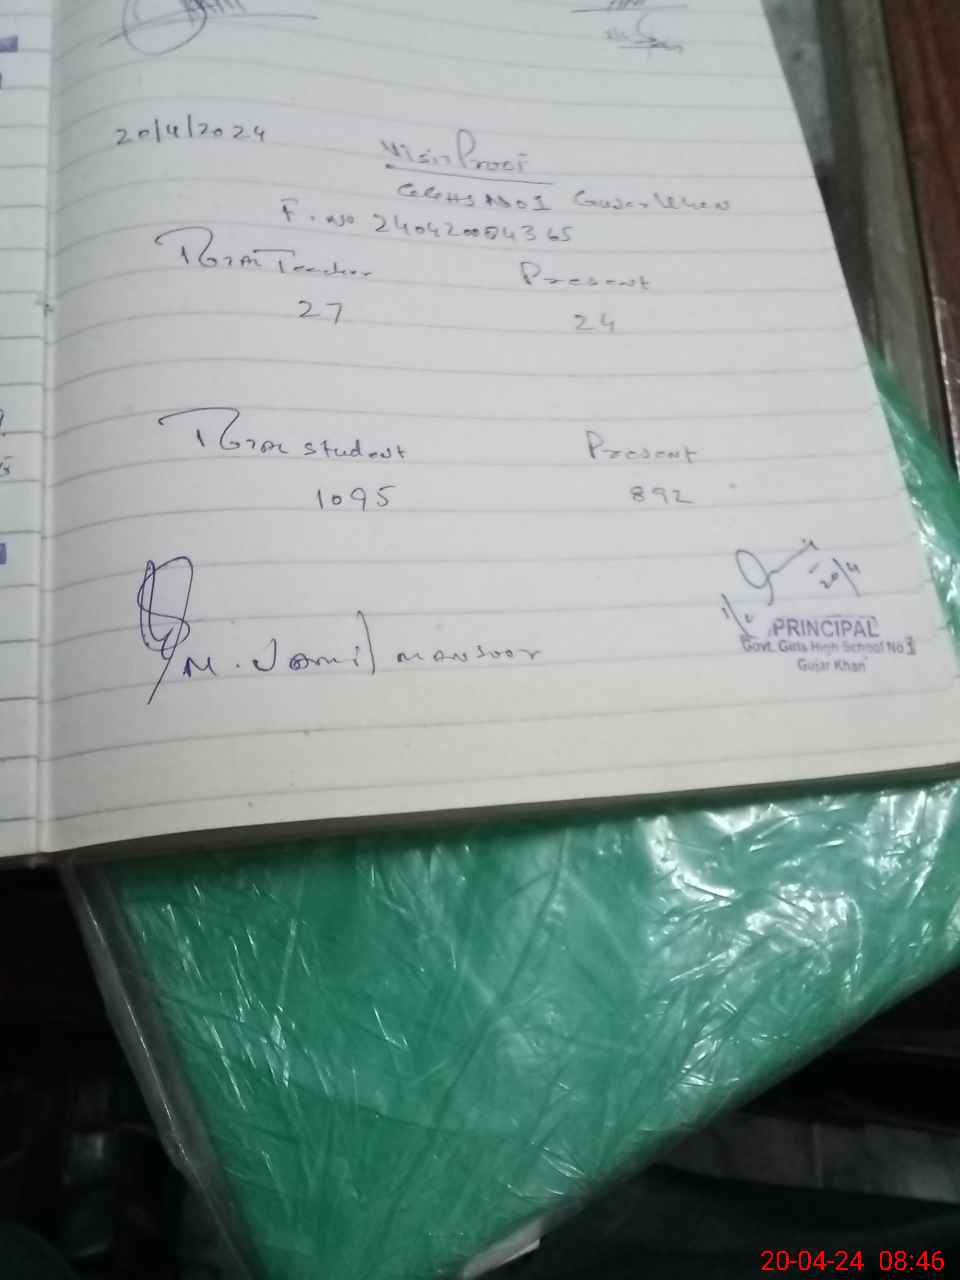 20/4/2024
Visit Proof
GGHS No 1 Gujar Khan
F. No 24042004365
Total Teacher Present
27 24
Total student Present
1095 892
M. Jamil mansoor
20/4
PRINCIPAL
Govt. Girls High School No 1
Gujar Khan
20-04-24 08:46